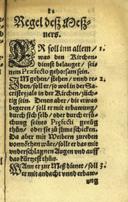 Regel deß Meß-
ners.
ER soll inn allem /
was den Kirchen
dienst belanget / sei-
nem Præfecto gehorsam sein.
Im gehen / stehen / vnnd re-
den / soll er / so wol in der Sa-
cristey als in der Kirchen / züch-
tig sein. Denen aber / die etwas
begeren / soll er mit erbawung /
durch sich selbs / oder durch erfa-
rung seines Præfecti genüg
thun / oder sie zu jhme schicken.
Da aber mit Weibern zureden
vonnöten wäre / soll er das mit
vnderschlagnen Augen vnd auff
das kürtzest thün.
Wann er zur Meß dienet / soll
er mit andacht vnd Erbaw-
ung
1.
2.
3